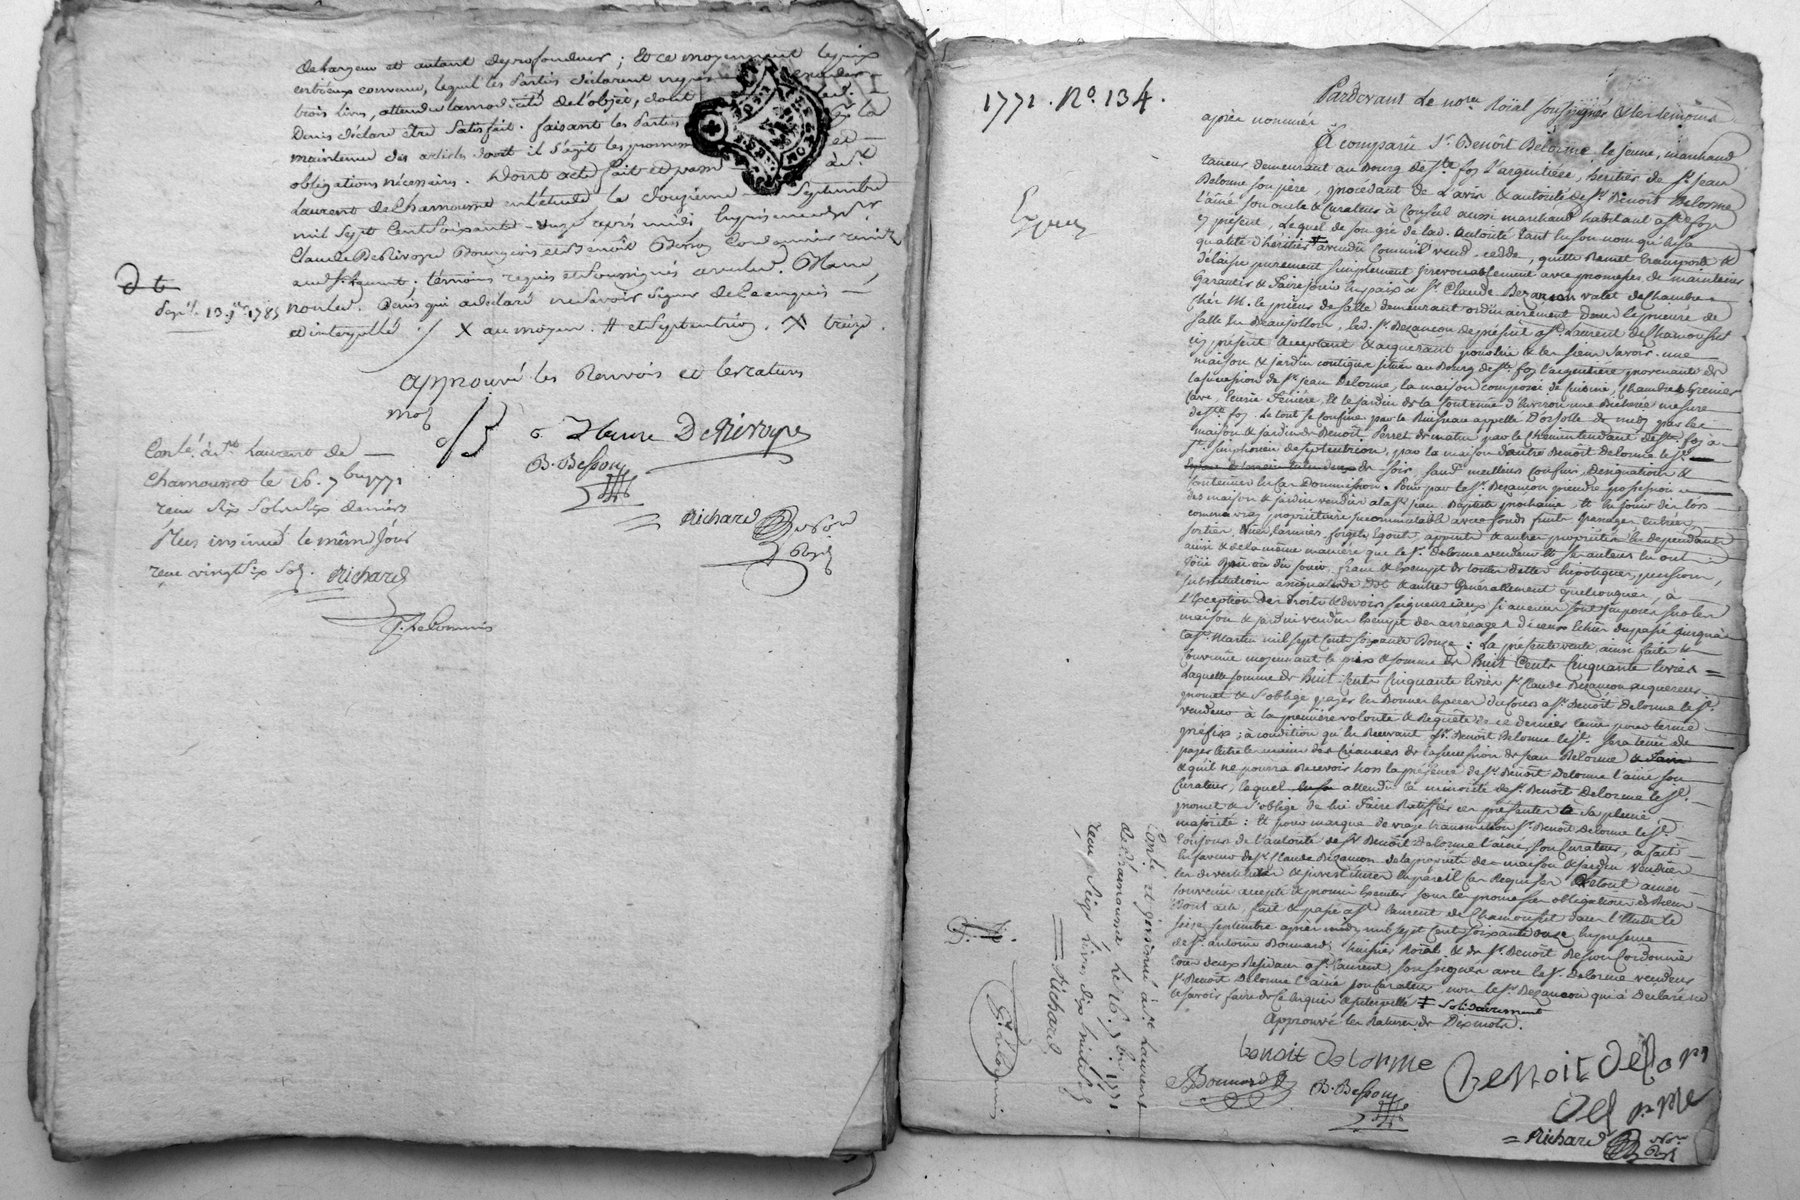 de largeur et autant de profondeur ; Et ce moyennant le prix
entr'eux convenu, lequel les Parties déclarent
trois livres, attendu la modicité de l'objet, dont
Denis déclare être Satisfait. faisant les Parties
maintenue des articles dont il s'agit les
obligations nécessaires. Dont acte fait et passé à St
Laurent de Chamousset en l'étude le douzième Septembre
mil Sept Cent Soixante-onze après midi En présence de Sr
Claude DeRivoyre Bourgeois et Benoît Besson Cordonnier
aud. St Laurent, témoins requis et Soussignés avec led.
non led. Denis qui a déclaré ne Savoir Signer de ce enquis
et interpellé ./. X au moyen. # et Septentrion. X treize.
approuvé les Renvois et les ratures
mots
DeRivoyre
B. Besson
Richard Besson
Exp. le 13. 9bre 1785
Conlé. à St Laurent de
Chamousset le 16. 7bre 1771
reçu Six Sols Six deniers
Plus insinué le même Jour
reçu vingt Six Sols. Richard
1771. No. 134.
Pardevant Le nore Roïal Soussigné, & les temoins
après nommés
A comparu Sr Benoît Delorme le jeune, marchand
taneur demeurant au Bourg de Ste foy L'argentiere, heritier de Sr Jean
Delorme son père, procedant de L'avis & autorité de Sr Benoît Delorme
l'ainé son oncle & Curateur à Conseil aussi marchand habitant a Ste foy
cy présent, Lequel de son gré de lad. Autorité tant en son nom qu'en sa
qualité d'héritier a vendu Comme il vend, cedde, quitte Remet transporte &
délaisse purement simplement irrevocablement avec promesse de maintenir
Garantir & Faire jouir en paix à Sr Claude Bezancon valet de Chambre
chez M. le prieur de Salle demeurant ordinairement dans le prieuré de
Salle en Beaujollois, Led. Sr Bezancon de présent a St Laurent de Chamousset
cy présent Acceptant & acquerant pour lui & les siens Savoir une
maison & jardin contigus situés au Bourg de Ste foy l'argentiere provenants de
la succession de Sr Jean Delorme, la maison composée de Cuisine, Chambre & Grenier
Cave, Ecurie Feniére, Et le jardin de la Contenue d'Environ une Bicherée mesure
de Ste foy. Le tout se Confine par le Ruisseau appellé D'orsolle de midy par les
maison & jardin de Benoît Perret de matin par le Chemin tendant de Ste foy à
St Simphorien de septentrion, par la maison dautre Benoît Delorme le Je.
de soir, sauf meilleurs Confins, Designation &
Contenue en Cas D'ommission. Pour par le Sr Bezancon prendre possession
des maison & jardin vendus a la St jean Baptiste prochaine, Et en jouir dès lors
comme vray propriétaire incommutable avec fonds fruits passages entrées
sorties, Vües larmiers, forgets, Egouts, appuits & autres proprietés en dependants
ainsi & de la même maniére que le Sr Delorme vendeur & ses auteurs en ont
Joüi ou dû jouir, franc & Exempt de toutes dettes hipotéques, pensions,
substitution assignats de dot & autres Généralement quelconques, à
l'Exception des droits & devoirs seigneuriaux si aucuns sont imposés sur les
maison & jardin vendus Exempt des arrérages d'iceux Echus du passé jusqu'a
la St Martin mil sept Cent soixante Douze : La présente vente ainsi faite &
Convenüe moyennant le prix & somme de huit Cents Cinquante livres
Laquelle somme de huit Cents Cinquante livres Sr Claude Bezancon acquereur
promet & s'oblige payer en Bonnes Especes du Cours a Sr Benoît Delorme le Je.
vendeur à la première volonté & Requête de ce dernier sans pour terme
prefix ; à condition qu'en Recevant Sr Benoît Delorme le Je. sera tenu de
payer Entre les mains des Créanciers de la succession de Jean Delorme
& qu'il ne pourra Recevoir hors la présence de Sr Benoît Delorme l'ainé son
Curateur, lequel attendu la minorité de Sr Benoît Delorme le Je.
promet & s'oblige de lui Faire Ratiffier ces présentes à sa pleine
majorité : Et pour marque de vraye transmition Sr Benoît Delorme le Je.
toujours de l'autorité de Sr Benoît Delorme l'ainé son Curateur, a fait
en faveur de Sr Claude Bezancon de la propriété des maison & jardin vendus
les devestitures & investitures en pareil Cas Requises & tout ainsi
Convenu accepté & promis Executer sous les promesses obligations & biens
Dont acte fait & passé a St Laurent de Chamousset dans l'Etude le
seize septembre après midy mil sept Cent soixante onze En presence
de Sr Antoine Bonnard huissier Roïal & de Sr Benoît Besson Cordonnier
tous deux Residants a St Laurent soussignés avec le Sr Delorme vendeur
Sr Benoît Delorme l'ainé son Curateur non le Sr Bezancon qui a Declaré ne
le savoir faire de ce Enquis & interpellé ‡ Solidairement
Approuvé les Ratures de Dix mots.
benoit delorme
Benoit Delorme
Bonnard
B. Besson
Richard
Conlé. et insinué à St Laurent
de Chamousset Le 16. 7bre 1771
reçu Seize livres dix huit Sols
Richard